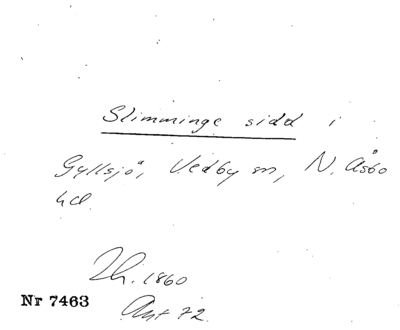 Slimminge sidd i
Gyllsjö, Vedby sn, N. Åsbo
hd.
Th. 1860
Nr 7463
Ant 72.